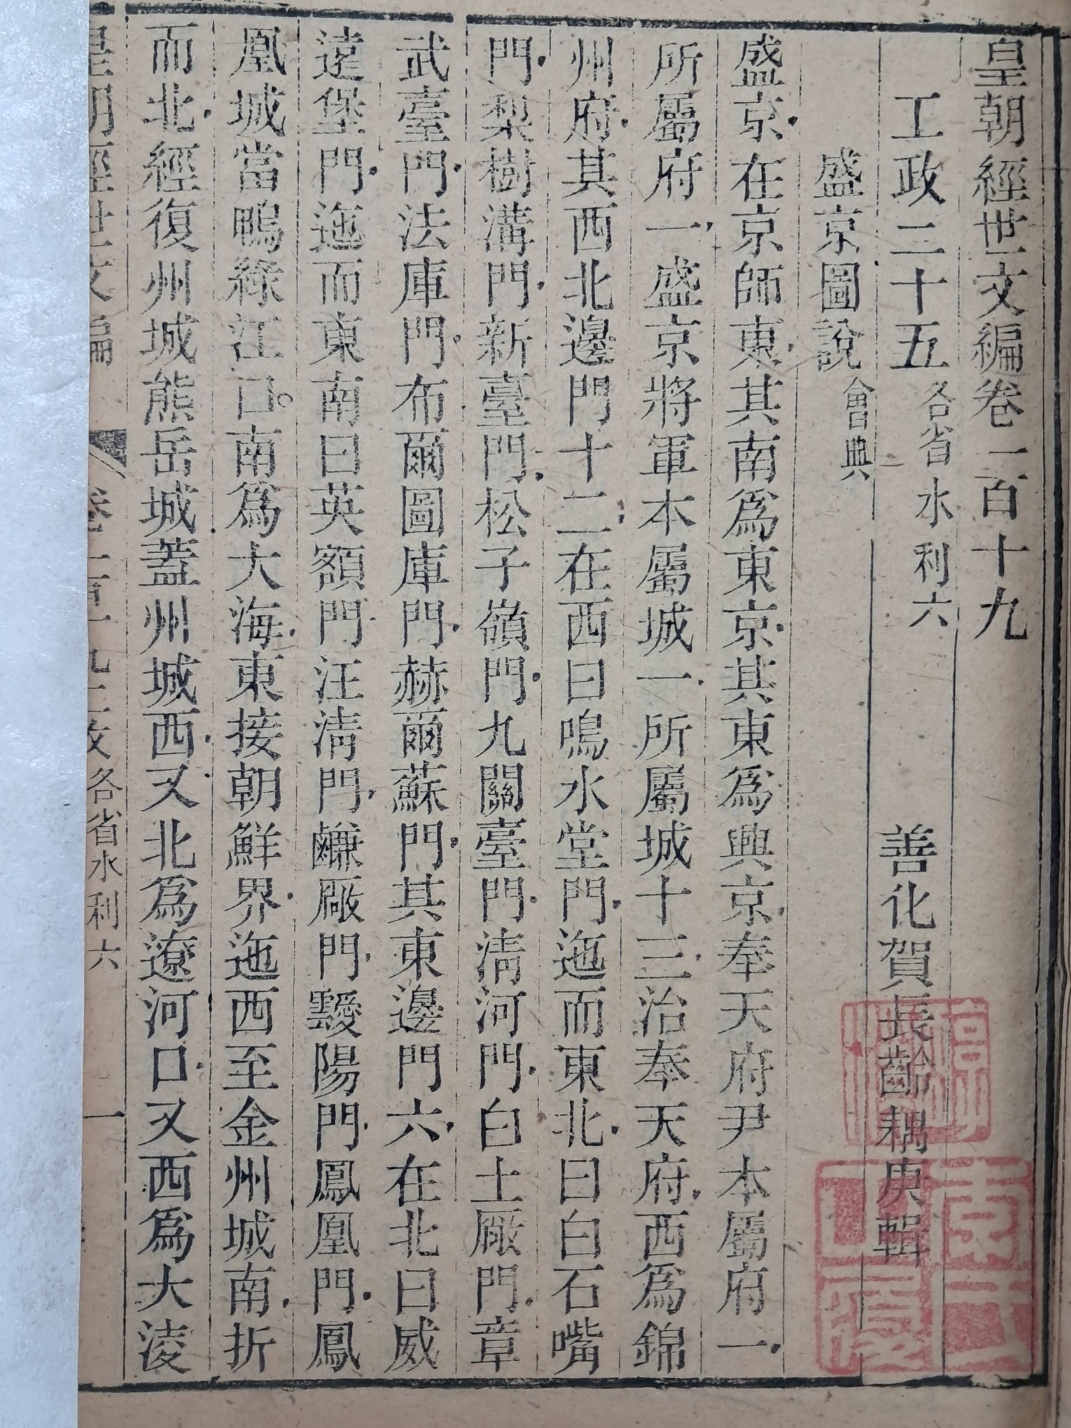 皇朝經世文編卷一百十九
工政二十五各省水利六 善化賀長齡耦庚輯
盛京圖說會典
盛京在京師東其南爲東京其東爲興京奉天府尹本屬府一
所屬府一盛京將軍本屬城一所屬城十三治奉天府西爲錦
州府其西北邊門十二在西曰鳴水堂門迤而東北曰白石嘴
門梨樹溝門新臺門松子嶺門九關臺門清河門白土厰門章
武臺門法庫門布爾圖庫門赫爾蘇門其東邊門六在北曰威
遠堡門迤而東南曰英額門汪清門鹻厰門靉陽門鳳凰門鳳
凰城當鴨綠江口南爲大海東接朝鮮界迤西至金州城南折
而北經復州城熊岳城蓋州城西又北爲遼河口又西爲大淩
皇朝經世文編 卷一百十九工政各省水利六 一